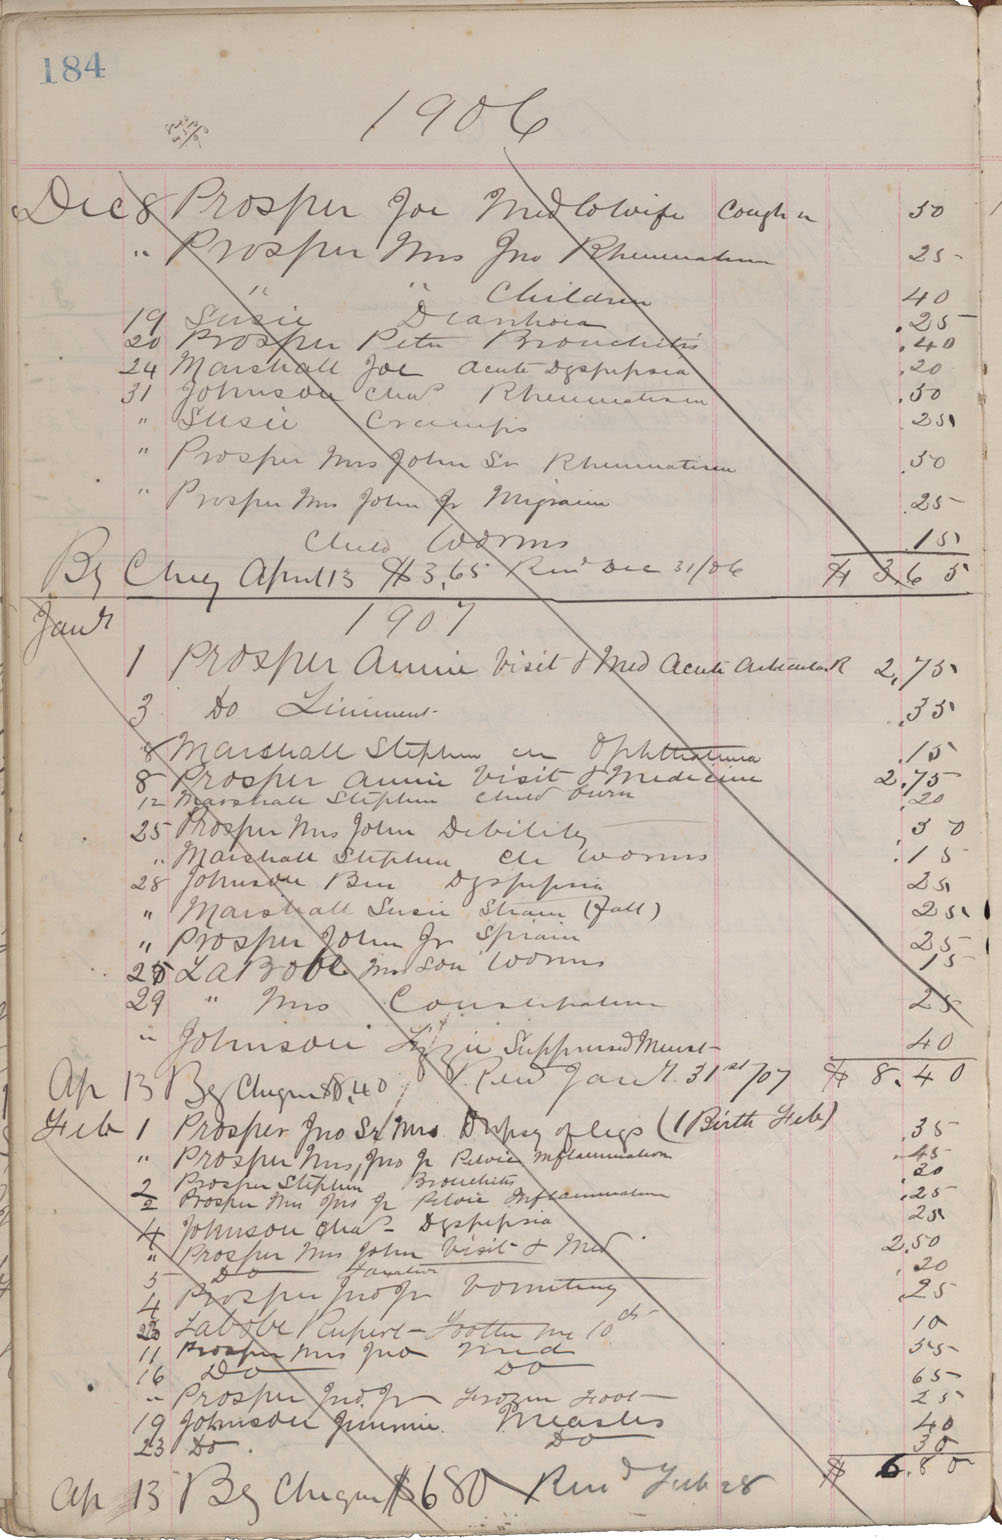 184
1906
Dec 8 Prosper Joe Med to wife Cough 50
" Prosper Mrs Jno Rheumatism 25
" " Children 40
19 Susie Diarrhoea .25
20 Prosper Peter Bronchitis .40
24 Marshall Joe Acute Dyspepsia .20
31 Johnson Chas Rheumatism .50
" Susie Cramps 25
" Prosper Mrs John Sr Rheumatism .50
" Prosper Mrs John Jr Migraine .25
Child Worms .15
By Cheq April 13 $3,65 Rend Dec 31/06 $ 3,65
Jany 1907
1 Prosper Annie Visit & Med Acute Articular R 2,75
3 Do Liniment .35
8 Marshall Stephen Ophthalmia .15
8 Prosper Annie Visit & Medicine 2,75
12 Marshall Stephen Child burn .20
25 Prosper Mrs John Debility 50
" Marshall Stephen Ch Worms .15
28 Johnson Ben Dyspepsia 25
" Marshall Susie Strain (fall) 25
" Prosper John Jr Sprain 25
LaBobe Mrs son Worms 15
29 " Mrs Constipation 25
" Johnson Lizzie Suppressed Menst 40
Ap 13 By Cheque $8,40 Rend Jany. 31st/07 $ 8.40
Feb 1 Prosper Jno Sr Mrs Dropsy of legs (1 Birth Feb) .35
" Prosper Mrs, Jno Jr Pelvic Inflammation 45
2 Prosper Stephen Bronchitis .20
2 Prosper Mrs Jno Jr Pelvic Inflammation .25
4 Johnson Chas - Dyspepsia 25
" Prosper Mrs John Visit & Med 2,50
5 Do Laxative .20
4 Prosper Jno Jr Vomiting .25
Labobe Rupert - 10 cts 10
11 Prosper Mrs Jno Med 55
16 Do Do 65
" Prosper Jno. Jr Frozen Foot 25
19 Johnson Jimmie Measles 40
23 Do. Do 30
$ 6.80
Ap 13 By Cheque $680 Rend Feb 28